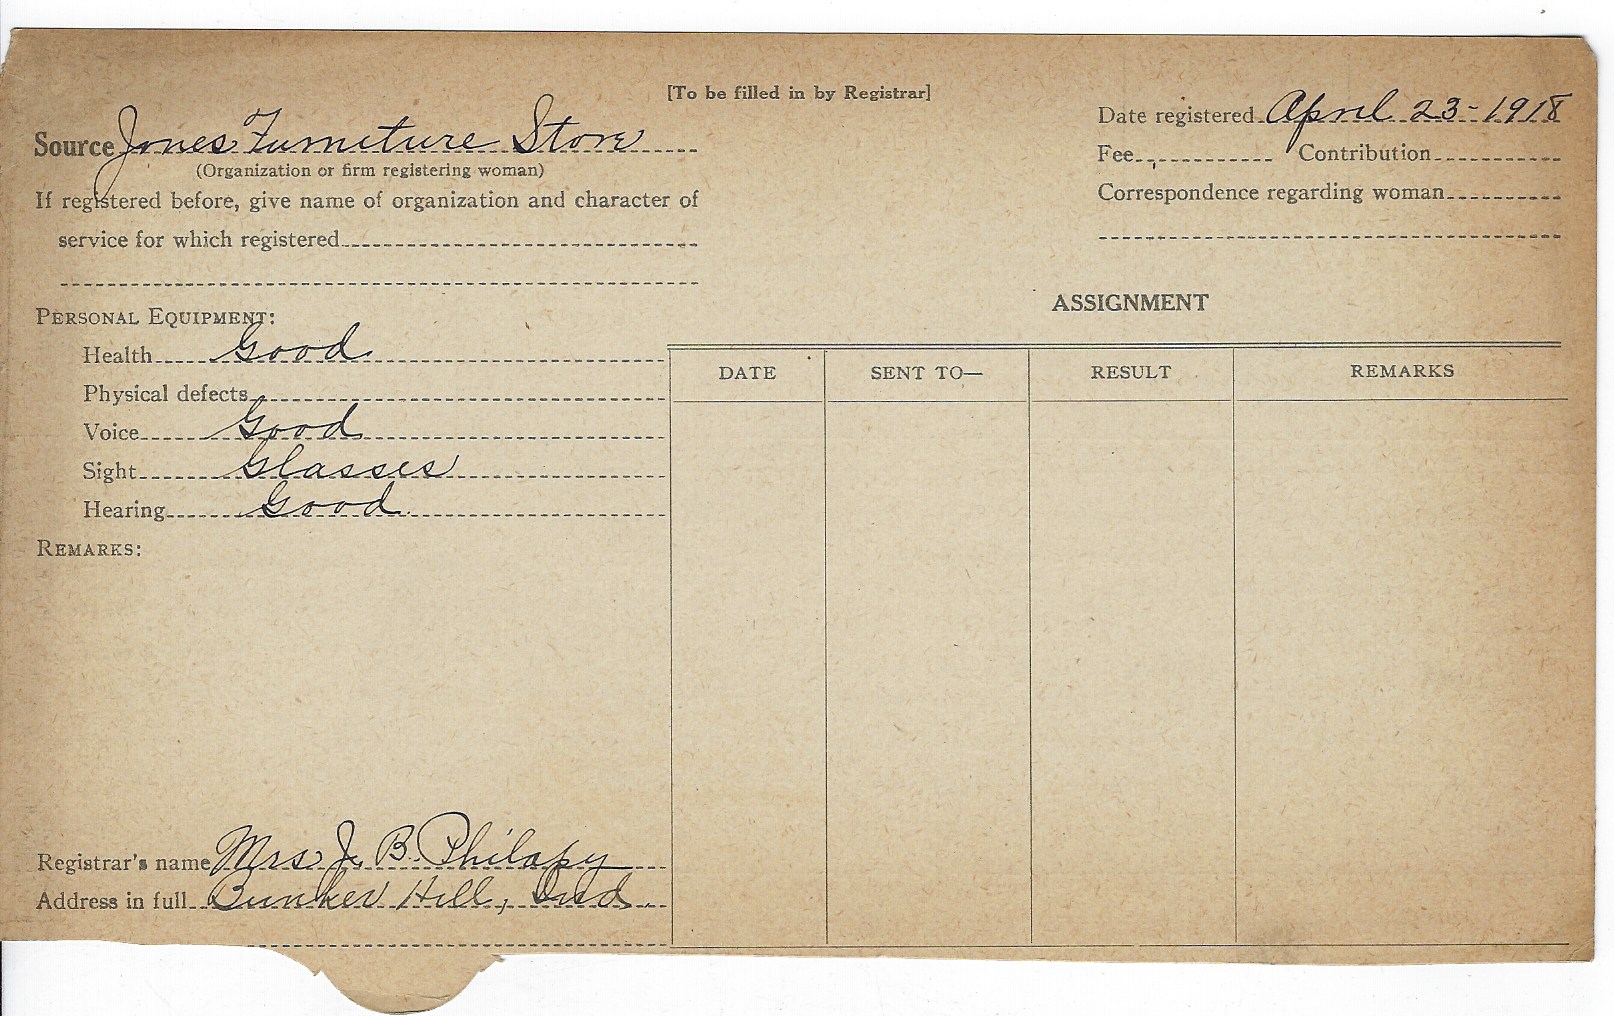 [To be filled in by Registrar]
Source Jones Furniture Store
(Organization or firm registering woman)
If registered before, give name of organization and character of
service for which registered
Date registered April 23-1918
Fee Contribution
Correspondence regarding woman
PERSONAL EQUIPMENT:
Health Good
Physical defects
Voice Good
Sight Glasses
Hearing Good
REMARKS:
Registrar's name Mrs J. B. Philapy
Address in full Bunker Hill, Ind.
ASSIGNMENT
DATE SENT TO— RESULT REMARKS